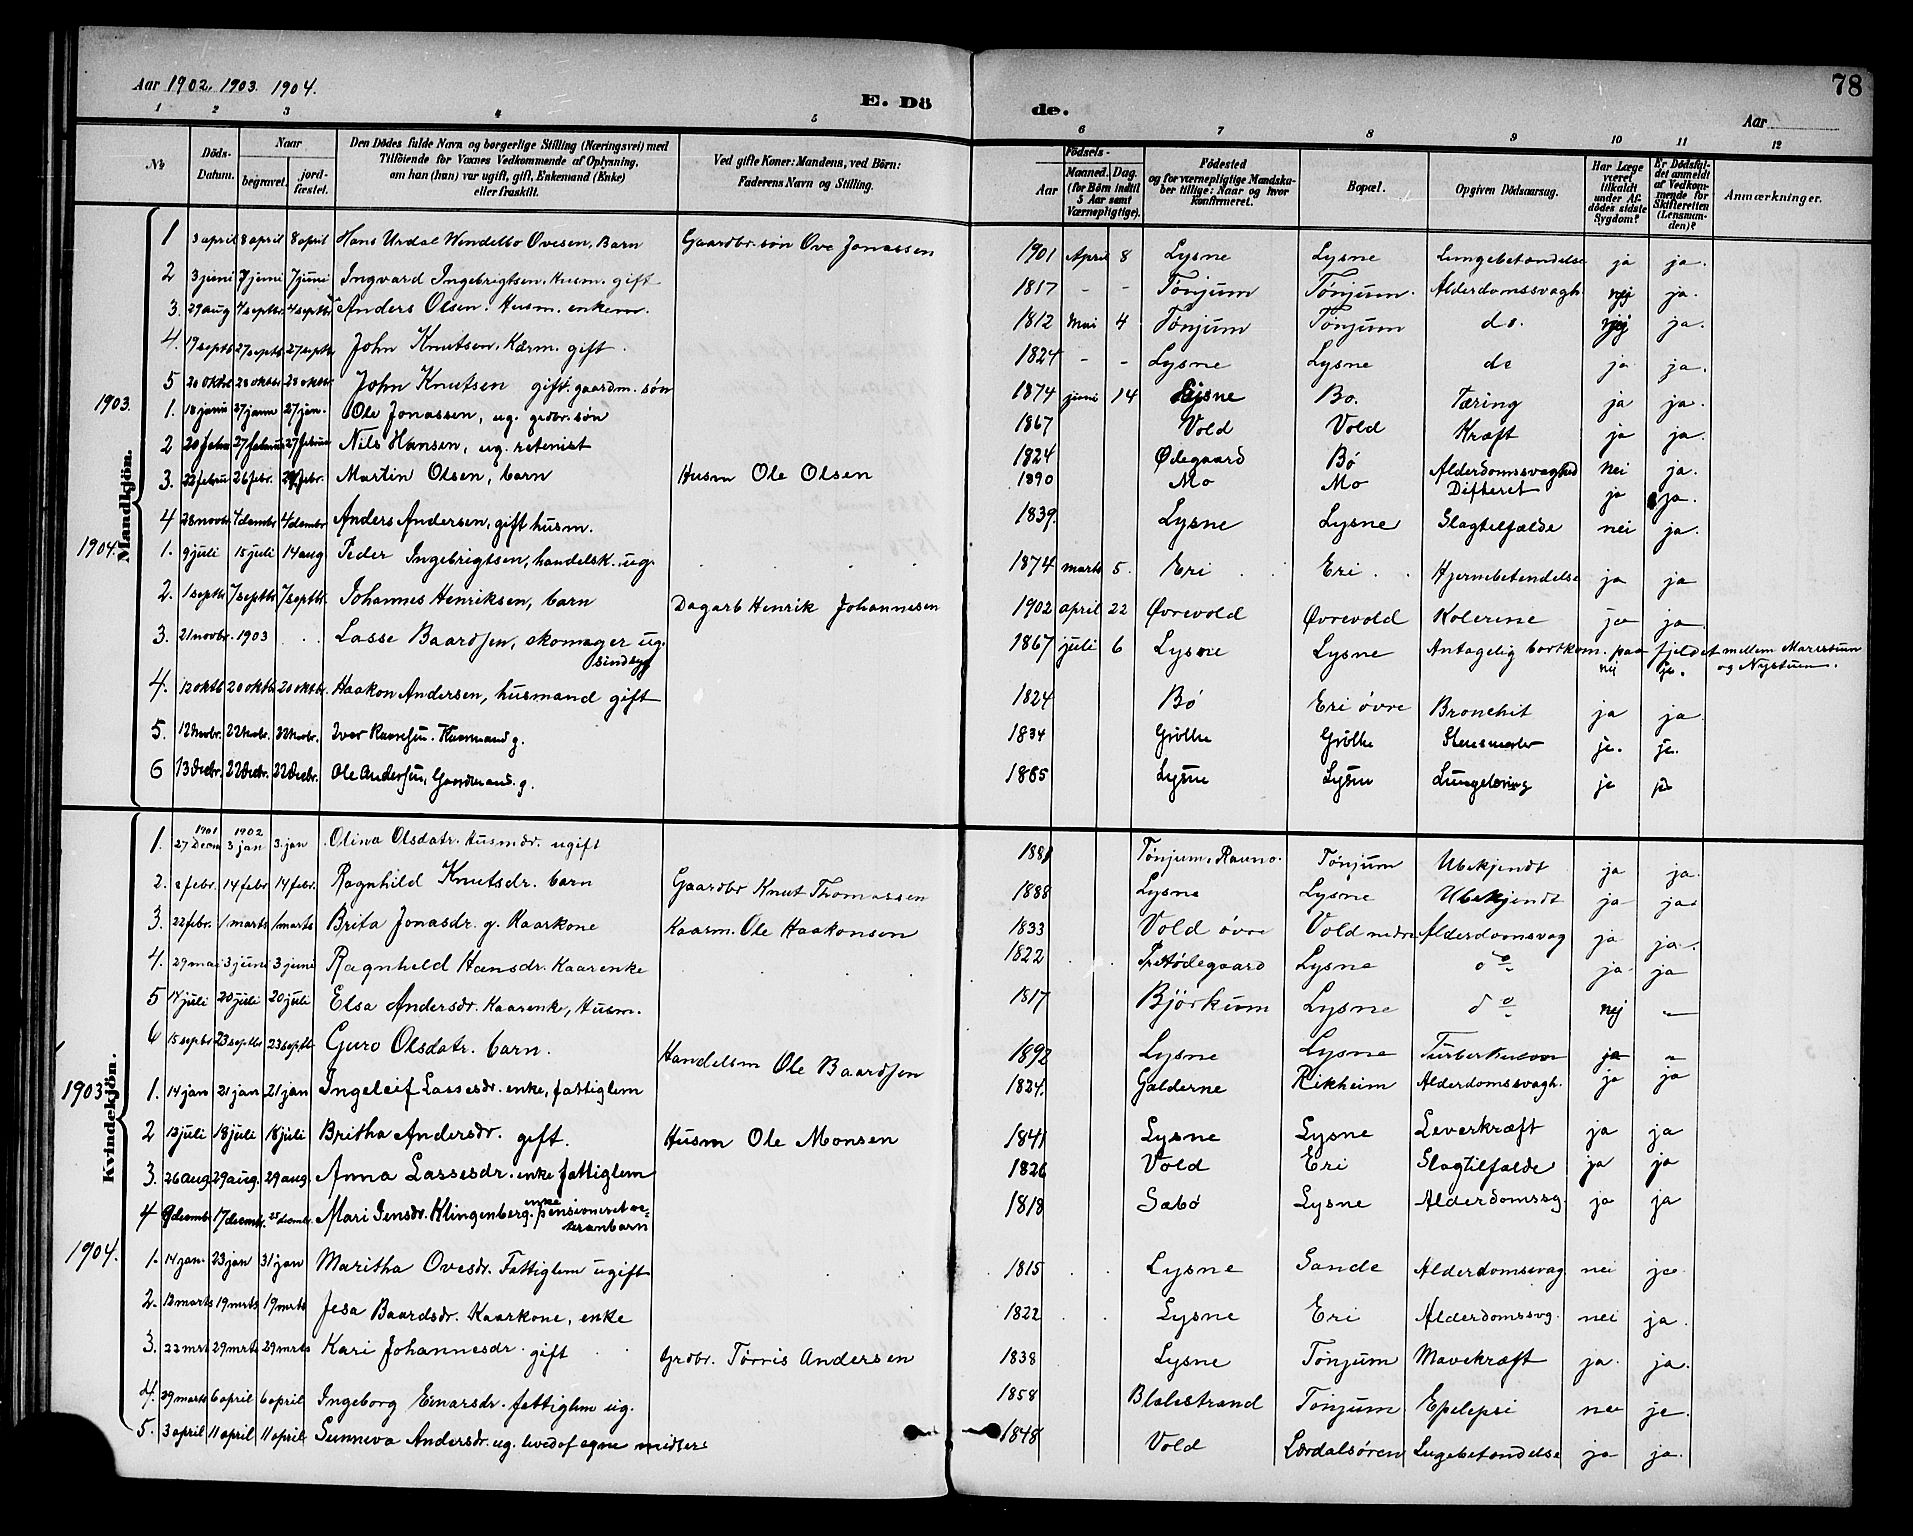 Aar 1902, 1903. 1904.
E. Dö de.
Aar
78
1 2 3 4 5 6 7 8 9 10 11 12
No
Döds-Datum.
Naar
begravet.
jord-fæstet.
Den Dödes fulde Navn og borgerlige Stilling (Næringsvei) med
Tilföiende for Voxnes Vedkommende af Oplysning,
om han (hun) var ugift, gift, Enkemand (Enke)
eller fraskilt.
Ved gifte Koner: Mandens, ved Börn:
Faderens Navn og Stilling.
Födsels-
Aar
Maaned. Dag.
(for Börn indtil
5 Aar samt
Værnepligtige).
Födested
og for værnepligtige Mandska-
ber tillige: Naar og hvor
konfirmeret.
Bopæl.
Opgiven Dödsaarsag.
Har Læge
været
tilkaldt
under Af-
dödes sidste
Sygdom?
Er Dödsfal-
det anmeldt
af Vedkom-
mende for
Skifteretten
(Lensman-
den)?
Anmærkninger.
Mandkjön.
1 3 april 8 april 8 april Hans Urdal Wendelbo Ovesen, Barn Gaardbr. søn Ove Jonassen 1901 April 8 Lysne Lysne Lungebetændelse ja ja.
2 3 juni 7 juni 7 juni Ingvard Ingebrigtsen. Husm. gift 1817 - - Tønjum Tønjum. Alderdomssvagh. nej ja.
3. 29 aug 4 septbr 4 septbr Anders Olsen. Husm. enkem. 1812 Mai 4 Tønjum Tønjum do. nej ja.
4. 19 septb 27 septb 27 septb John Knutsen, Kærm. gift. 1824 - - Lysne Lysne do ja ja.
5 20 oktbr 28 oktbr 28 oktbr John Knutsen gift. gaardm. søn 1874 juni 14 Lysne Bø. Tæring ja ja.
1903. 1. 18 janu 27 janu 27 jan. Ole Jonassen, ug. grdbr. søn 1867 Vold Vold Kræft ja ja.
2 20 febru 27 februar 27 februar Nils Hansen, ug. 1824 Ødegaard Bø Alderdomssvaghed nei ja.
3. 22 febru 26 febr. febr. Martin Olsen, barn Husm Ole Olsen 1890 Mo Mo Difteret ja ja.
4 28 novbr 4 dembr 4 dembr Anders Andersen, gift husm. 1839. Lysne Lysne Slagtilfælde nei ja.
1904. 1. 9 juli 15 juli 14 aug Peder Ingebrigtsen, handelsk. ug. 1874 marts 5. Eri Eri Hjernebetendelse ja ja
2. 1 septbr 7 septbr 7 septbr. Johannes Henriksen, barn Dagarb Henrik Johannesen 1902 april 22 Øvrevold Øvrevold Kolerine ja ja.
3. 21 novbr. 1903 Lasse Baardsen, skomager ug. sindsyg 1867 juli 6 Lysne Lysne Antagelig bortkom. paa fjeldet mellem Maristuen
nej ja. og Nystuen.
4. 12 oktb 20 oktb 20 oktbr. Haakon Andersen, husmand gift 1824 Bø Eri øvre Bronchit ja ja
5. 12 Novbr. 22 Novbr. 22 Novbr. Iver g. 1834 Grøthe Grøthe ja. ja.
6 13 Decbr. 22 Decbr. 22 Decbr. Ole Andersen, Gaardmand. g. 1865 Lysne Lysne ja ja
Kvindekjön.
1. 1901 27 Decm 1902 3 jan 3. jan Olina Olsdatr. Husmdr. ugift 1881 Tønjum. Tønjum Ubekjendt ja ja.
2. 2 febr. 14 febr 14 febr. Ragnhild Knutsdr. barn Gaardbr Knut Thomassen 1888 Lysne Lysne Ubekjendt ja ja
3. 22 febr. 1 marts 1 marts Brita Jonasdr. g. Kaarkone Kaarm. Ole Haakonsen 1833 Vold øvre Vold nedre Alderdomsvag ja ja.
4. 29 mai 3 juni 3 juni Ragnhild Hansdr. Kaarenke 1822 Lysne do ja ja
5 14 juli 20 juli 20 juli Elsa Andersdr. Kaarenk, Husm. 1817 Bjørkum Lysne do nej -
6 15 septbr 23 septbr 23 septb Guro Olsdatr. barn. Handelsm Ole Baardsen 1892 Lysne Lysne ja "
1903 1. 14 jan 21 jan 21 jan Ingeleif Lassesdr. enke, fattiglem 1824. Galderne Rikheim Alderdomssvagh. ja ja
2 13 juli 18 juli 18 juli Britha Andersdr. gift. Husm Ole Monsen 1841 Lysne Lysne Leverkræft ja ja
3. 26 aug 29 aug. 29 aug. Anna Lassesdr. enke fattiglem 1826 Vold Eri Slagtilfælde ja ja
4 9 decmbr 17 decmbr. 25 decmbr. Mari Jensdr. Klingenberg. enke pensioneret ve-
teranbarn 1818 Sæbø Lysne Alderdomssg. ja ja
1904. 1. 14 jan. 23 jan 31 jan Maritha Ovesdr. Fattiglem ugift 1815 Lysne Sande Alderdomssvag nei ja.
2. 12 marts 19 mrts 19 mrts Jesa Baardsdr. Kaarkone, enke 1822 Lysne Eri Alderdomssvg. nei ja.
3. 22 mrt 29 mrts 29 mrts Kari Johannesdr. gift Grdbr. Tørris Andersen 1838 Lysne Tønjum Mavekræft ja. ja.
4. 29 marts 6 april 6 april Ingeborg Einarsdr. fattiglem ug. 1858 Balestrand Tønjum Epelepsi nei ja.
5. 3 april 11 april 11 april Sunneva Andersdr. ug. leved af egne midler 1848 Vold Lærdalsøren Lugebetændelse ja ja.